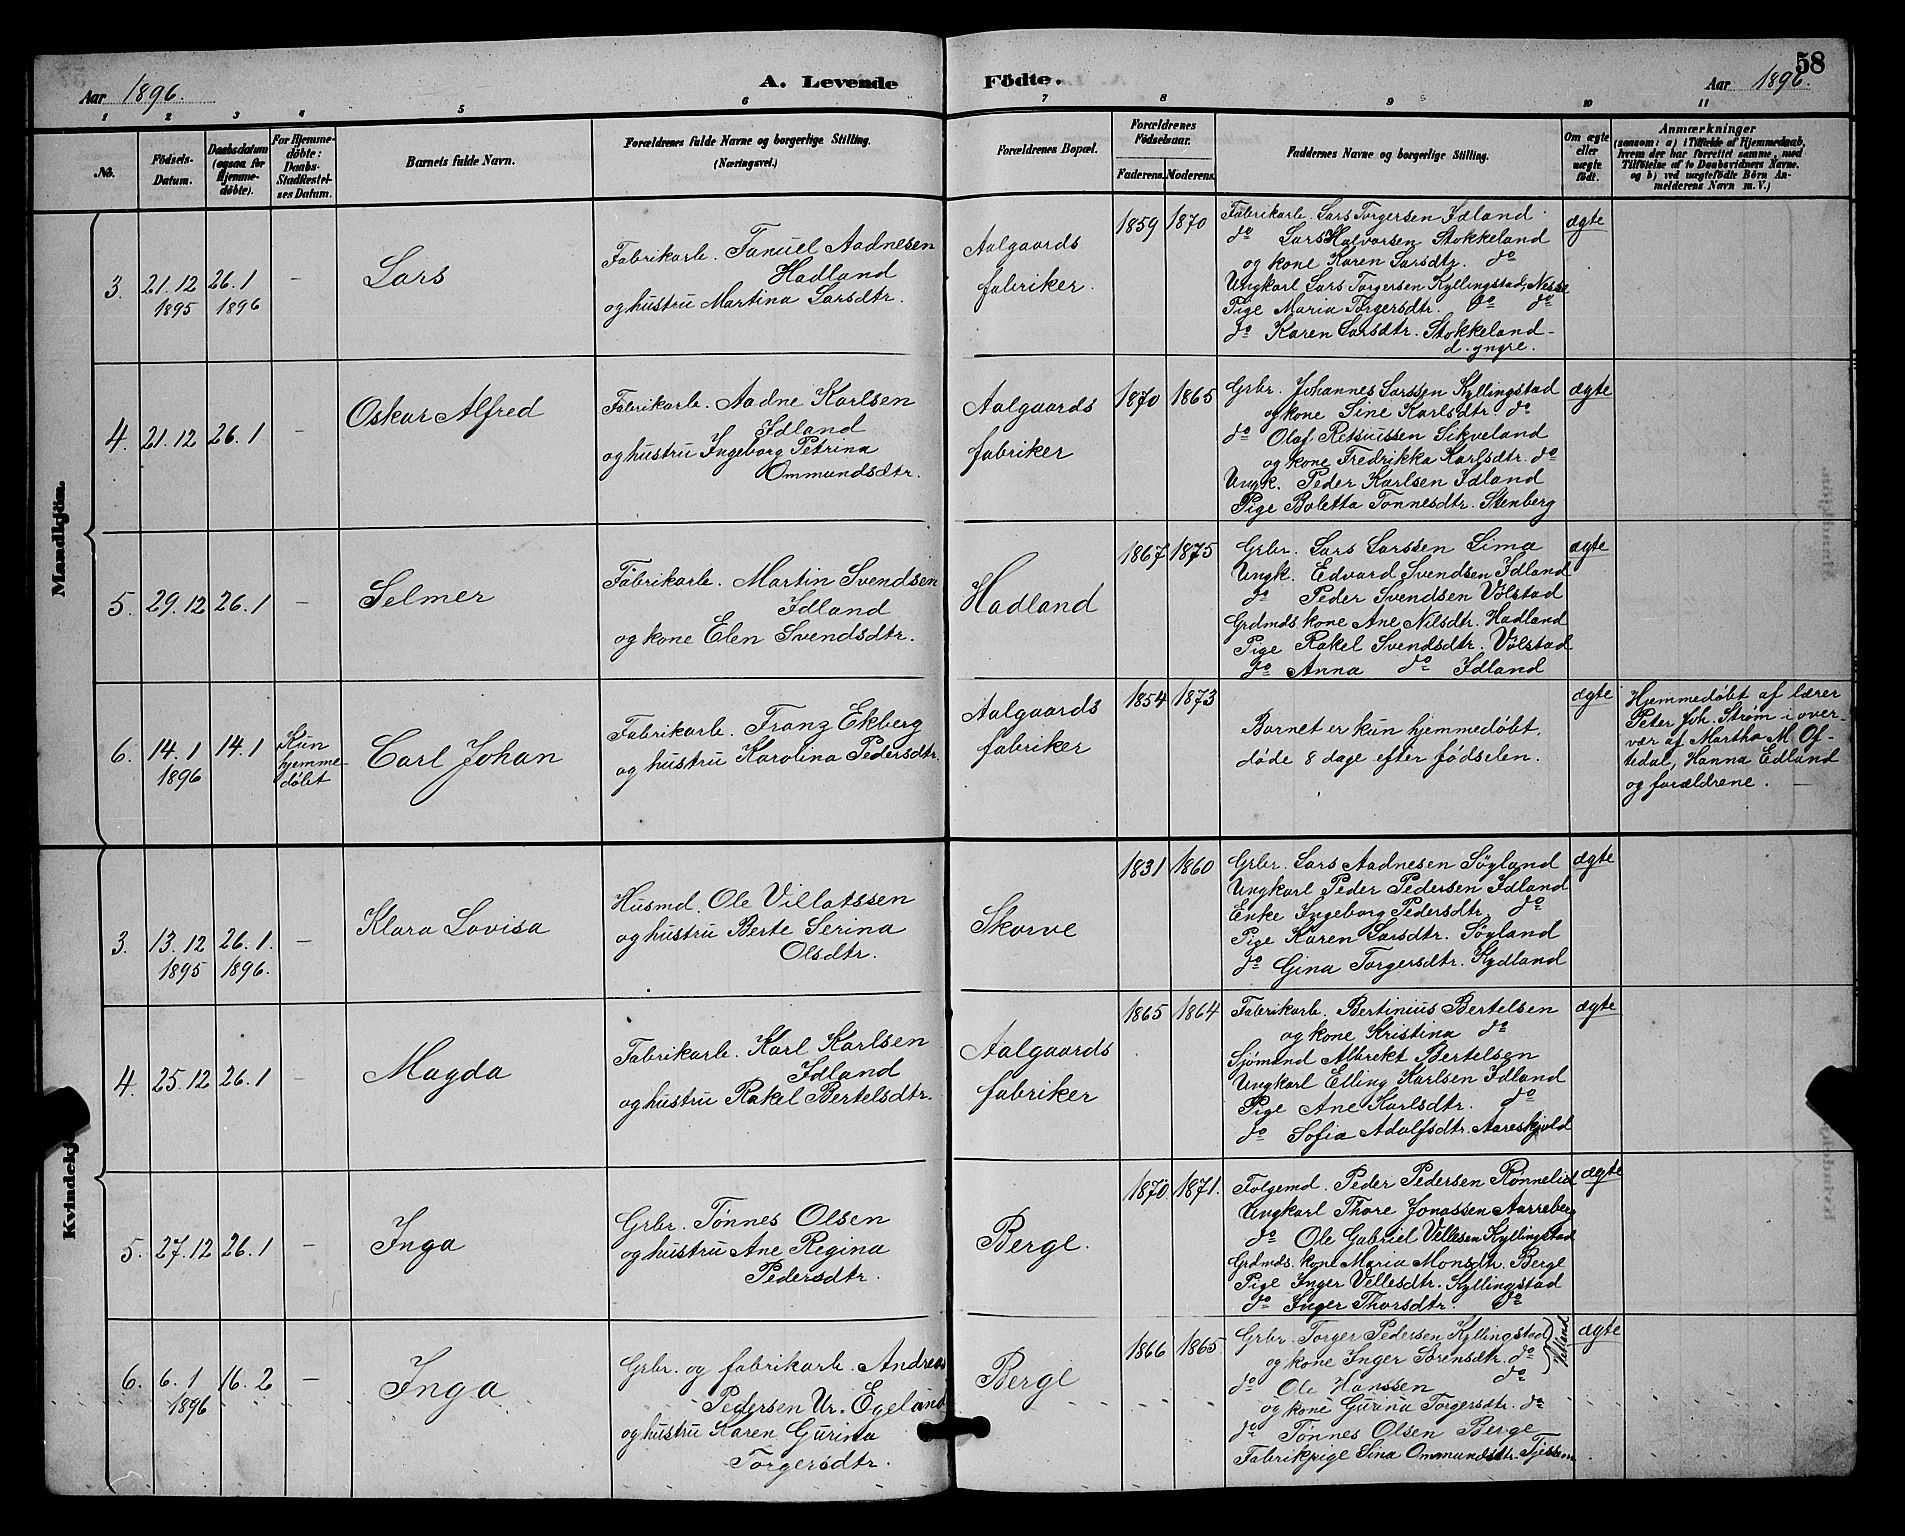 58
Aar 1896.
A. Levende
Födte.
Aar 1896.
1 2 3 4 5 6 7 8 9 10 11
No.
Födsels-
Datum.
Daabsdatum
(ogsaa for
Hjemme-
döbte).
For Hjemme-
döbte:
Daabs-
Stadfæstel-
ses Datum.
Barnets fulde Navn.
Forældrenes fulde Navne og borgerlige Stilling.
(Næringsvei.)
Forældrenes Bopæl.
Forældrenes
Födselsaar.
Faderens. Moderens.
Faddernes Navne og borgerlige Stilling.
Om ægte
eller
uægte
födt.
Anmærkninger
(saasom: a) i Tilfælde af Hjemmedaab,
hvem der har forrettet samme, med
Tilföielse af to Daabsvidners Navne.
og b) ved uægtefödte Börn An-
melderens Navn m. V.)
Mandkjön.
3.
21.12
1895
26.1
1896
–
Lars
Fabrikarb. Tanuel Aadnesen
Hadland
og hustru Martina Larsdtr.
Aalgaards
fabriker.
1859 1870
Fabrikarb. Lars Torgersen Idland
do Lars Halvorsen Stokkeland
og kone Karen Larsdtr. do
Ungkarl Lars Torgersen Kyllingstad, Nesse
Pige Maria Torgersdtr. do do
do Karen Larsdtr. Stokkeland
d. yngre.
ægte
4.
21.12
26.1
–
Oskar Alfred
Fabrikarb. Aadne Karlsen
Idland
og hustru Ingeborg Petrina
Ommundsdtr.
Aalgaards
fabriker
1870 1865
Grbr. Johannes Larssen Kyllingstad
og kone Sine Karlsdtr do
do Olaf Retsiussen Sikveland
og kone Fredrikka Karlsdtr. do
Ungk. Peder Karlsen Idland
Pige Boletta Tonnesdtr. Stenberg
ægte
5.
29.12
26.1
–
Selmer
Fabrikarb. Martin Svendsen
Idland
og kone Elen Svendsdtr.
Hadland
1867 1875
Grbr. Lars Larssen Lima
Ungk. Edvard Svendsen Idland
do Peder Svendsen Völstad
Grdmds. kone Ane Nilsdtr. Hadland
Pige Rakel Svendsdtr. Völstad
do Anna do Idland
ægte
6.
14.1
1896
14.1
Kun
hjemme-
døbt
Carl Johan
Fabrikarb. Franz Ekberg
og hustru Karolina Pedersdtr.
Aalgaards
fabriker
1854 1873
Barnet er kun hjemmedøbt,
døde 8 dage efter fødselen.
ægte
Hjemmedøbt af lærer
Peter Joh. Strøm i over-
vær af Martha M. Of-
tedal, Hanna Edland
og forældrene.
Kvindekj
3.
13.12
1895
26.1.
1896.
–
Klara Lovisa
Husmd. Ole Villatssen
og hustru Berte Serina
Olsdtr.
Skorve
1831 1860
Grbr. Lars Aadnesen Söyland
Ungkarl Peder Pedersen Idland
Enke Ingeborg Pedersdtr. do
Pige Karen Larsdtr. Söyland
do Gina Torgersdtr. Kydland
ægte
4.
25.12
26.1
–
Magda
Fabrikarb. Karl Karlsen
Idland
og hustru Rakel Bertelsdtr.
Aalgaards
fabriker
1865 1864
Fabrikarb. Bertinius Bertelsen
og kone Kristina do
Sjømand Albrekt Bertelsen
Ungkarl Elling Karlsen Idland
Pige Ane Karlsdtr. do
do Sofia Adolfsdtr. Aareskjold
ægte
5.
27.12
26.1
–
Inga
Grbr. Tönnes Olsen
og hustru Ane Regina
Pedersdtr.
Berge.
1870 1871.
Folgemd. Peder Pedersen Rönnelid
Ungkarl Thore Jonassen Aarreberg
do Ole Gabriel Vellesen Kyllingstad
Grdmds. kone Maria Monsdtr. Berge
Pige Inger Vellesdtr. Kyllingstad
do Inger Thorsdtr. do
ægte
6.
6.1
1896
16.2
–
Inga
Grbr. og fabrikarb. Andreas
Pedersen Ur. Egeland
og hustru Karen Gurina
Torgersdtr.
Berge
1866 1865
Grbr. Torger Pedersen Kyllingstad
og kone Inger Sorensdtr. do
do Ole Hanssen do
og kone Gurina Torgersdtr. do
do Tönnes Olsen Berge
Fabrikpige Sina Ommundsdtr. Tjessem
ægte